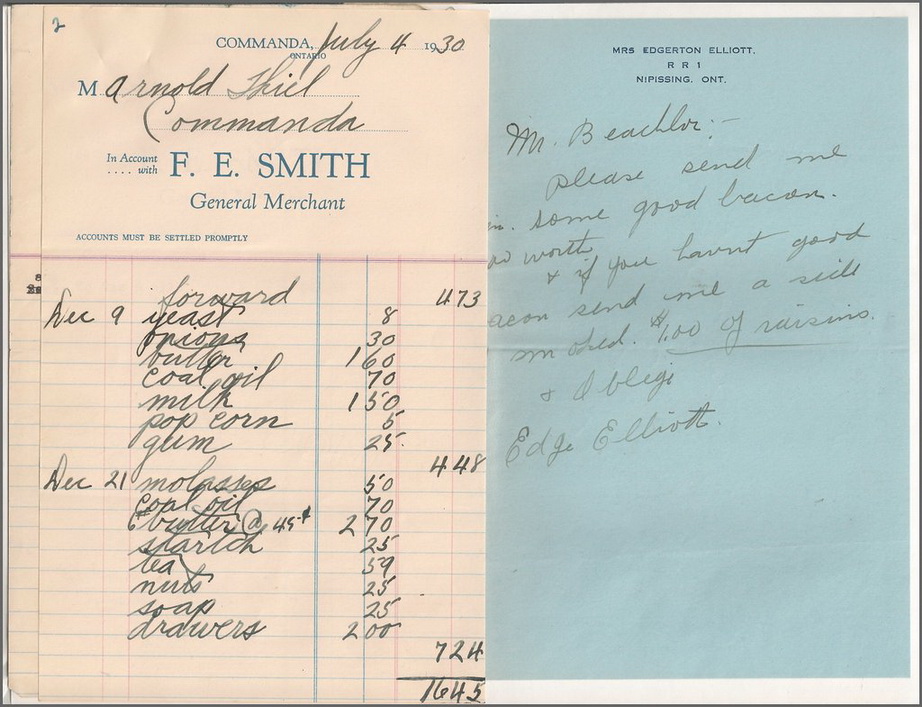 2
COMMANDA, July 4 1930
ONTARIO
M Arnold Thiel
Commanda
In Account
.... with F. E. SMITH
General Merchant
ACCOUNTS MUST BE SETTLED PROMPTLY
forward 473
Dec 9 yeast 8
onions 30
butter 1 60
coal oil 70
milk 1 50
pop corn 5
gum 25
448
Dec 21 molasses 50
coal oil 70
6 butter @ 45¢ 2 70
startch 25
tea 59
nuts 25
soap 25
drawers 2 00
724
1645
MRS EDGERTON ELLIOTT,
R R 1
NIPISSING, ONT.
Mr. Beachlor:-
please send me
some good bacon.
worth
+ if you havnt good
acon send me a side
smoked. $1.00 of raisins.
+ Oblege
Edge Elliott.